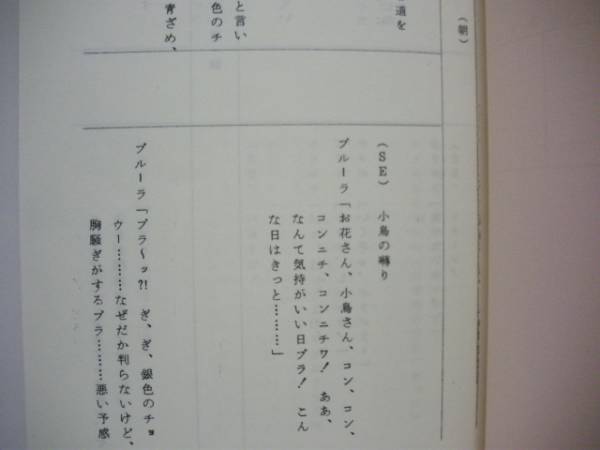 （朝）
道を
と言い
色のチ
青ざめ、
（SE）　小鳥の囀り
ブルーラ「お花さん、小鳥さん、コン、コン、
コンニチ、コンニチワ！　ああ、
なんて気持がいい日ブラ！　こん
な日はきっと………」
ブルーラ「ブラ〜ッ?!　ぎ、ぎ、銀色のチョ
ウー………なぜだか判らないけど、
胸騒ぎがするブラ………悪い予感